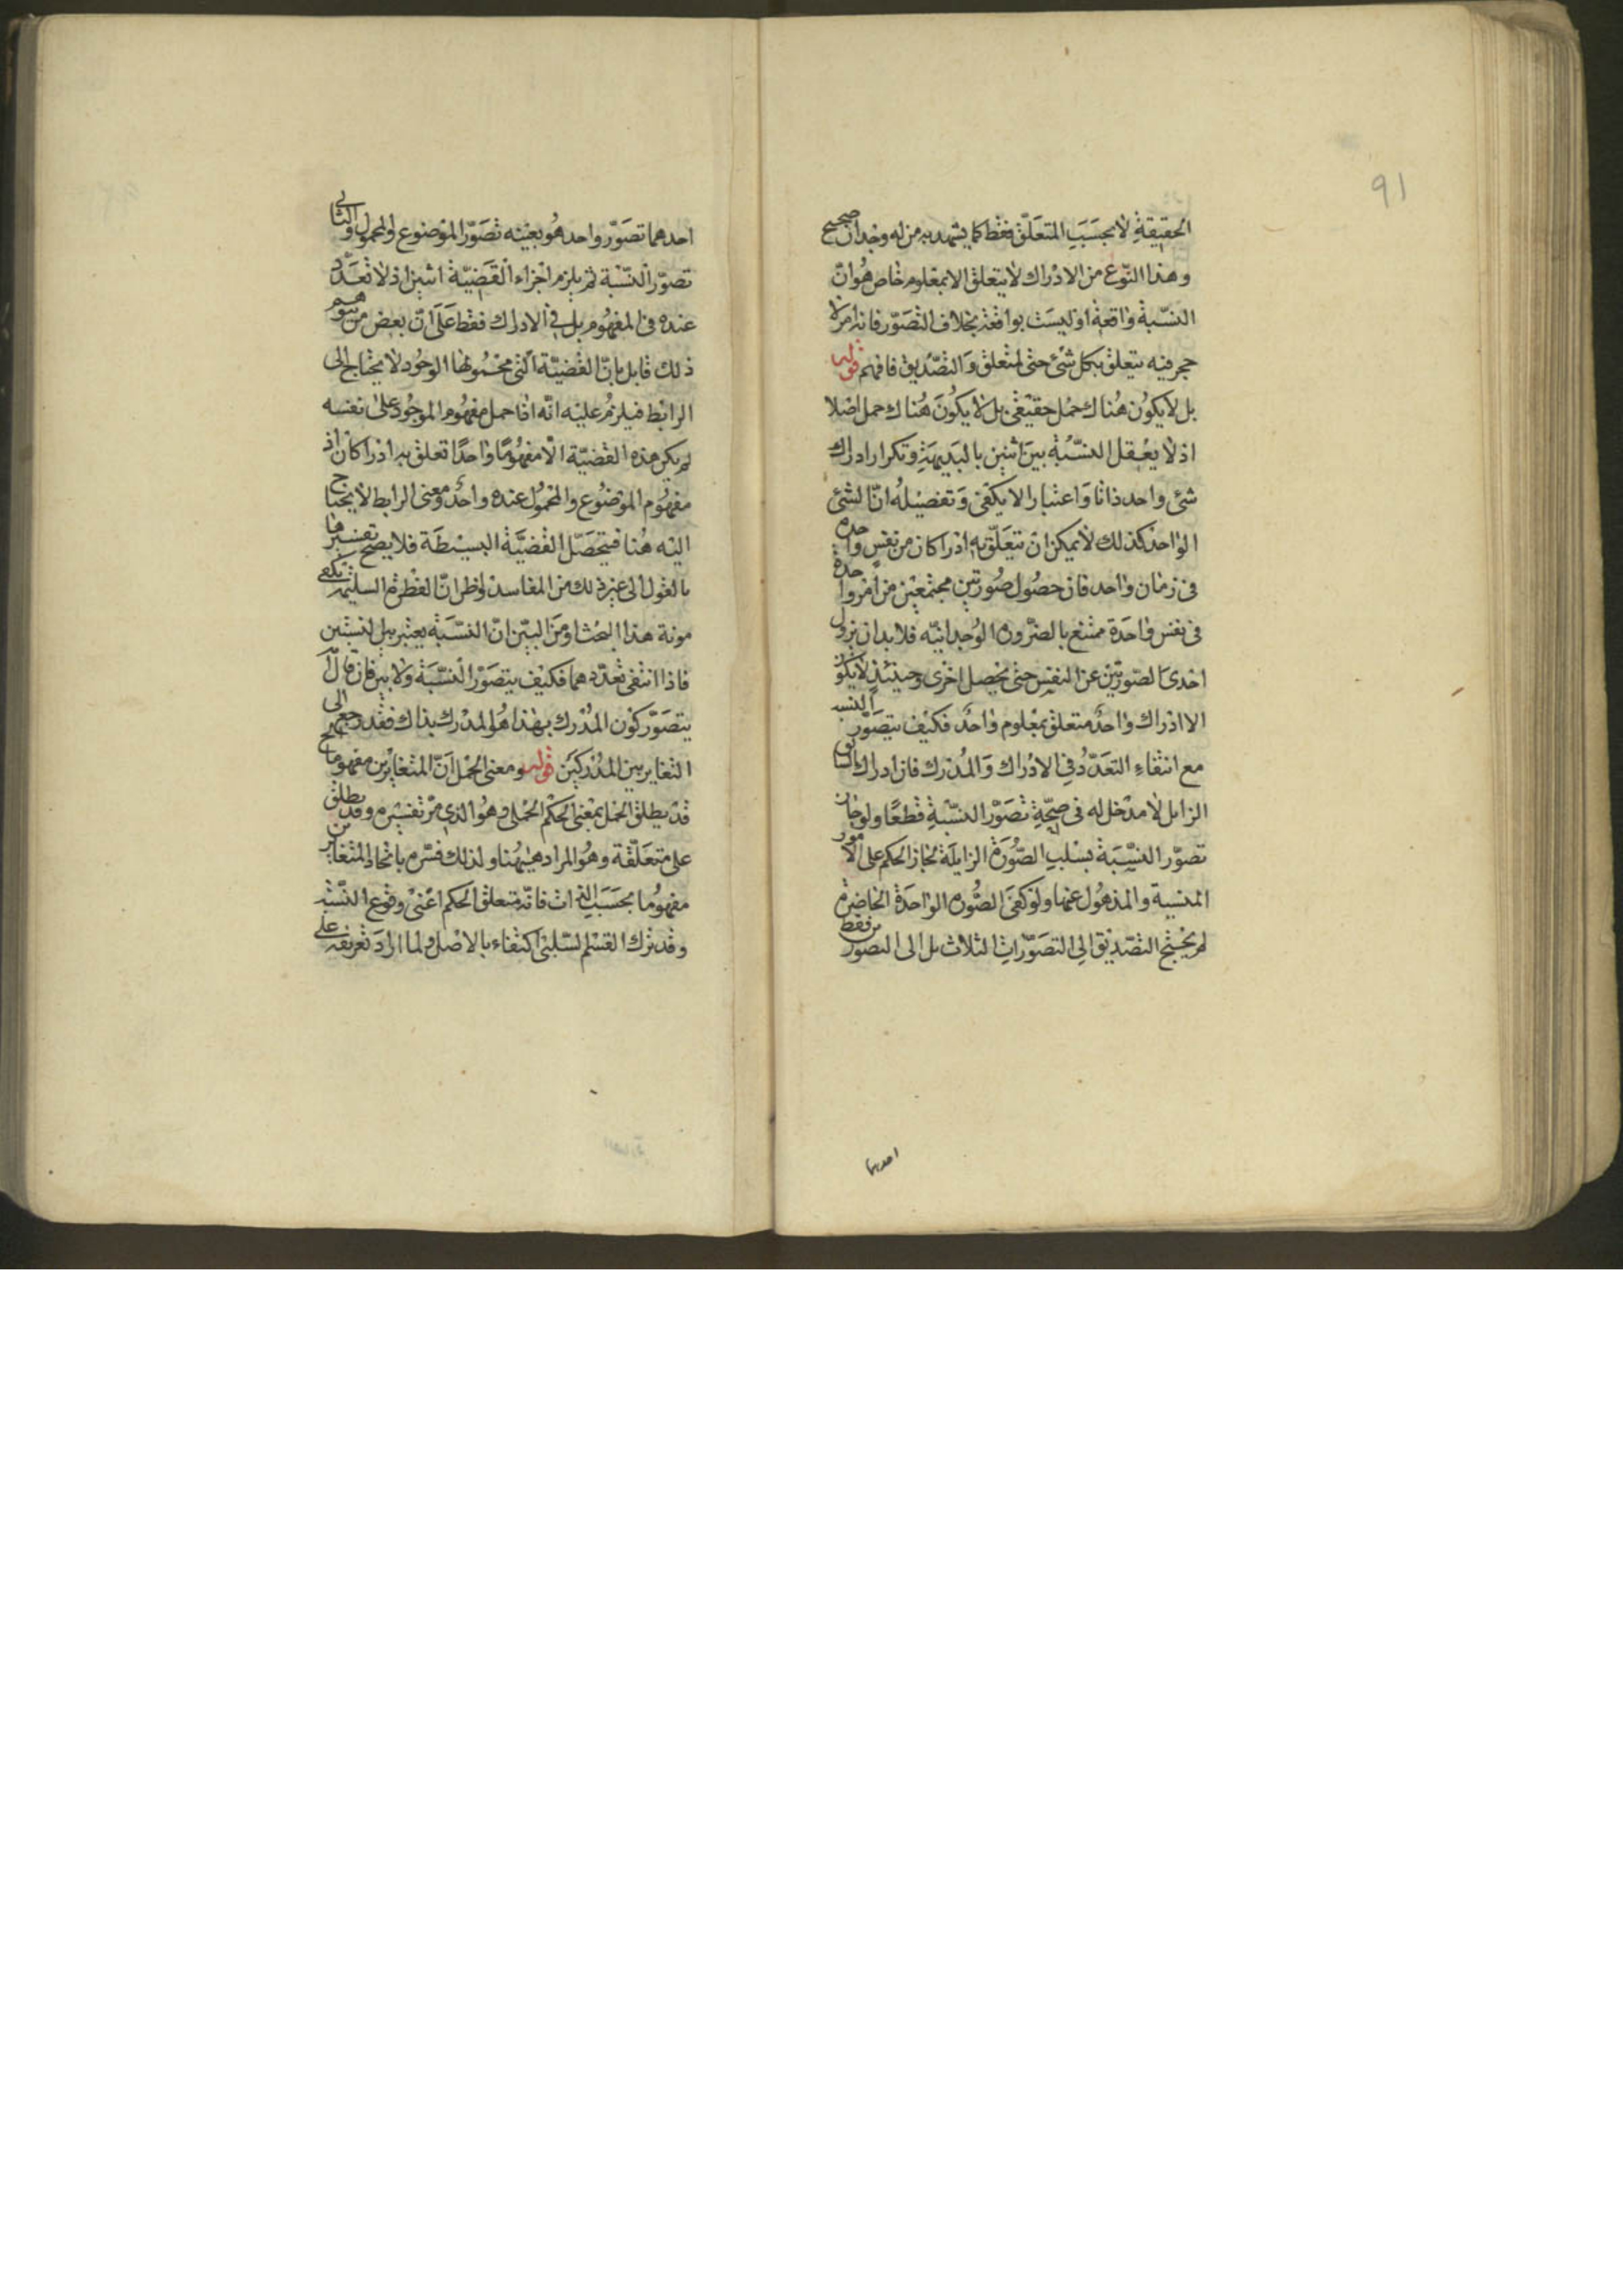 91
الحقيقة لا بحسب المتعلق فقط كما يشهد به من له وجدان صحيح
وهذا النوع من الادراك لا يتعلق الا بمعلوم خاص هو ان
النسبة واقعة او ليست بواقعة بخلاف التصور فانه امر لا
حجر فيه يتعلق بكل شئ حتى لمتعلق والتصديق فافهم قوله
بل لا يكون هناك حمل حقيقى بل لا يكون هناك حمل اصلا
اذ لا يعقل النسبة بين اثنين بالبديهة وتكرار ادراك
شئ واحد ذاتا واعتبارا لا يكفى وتفصيله ان الشئ
الواحد كذلك لا يمكن ان يتعلق به ادراكان من نفس واحدة
فى زمان واحد فان حصول صورتين مجتمعين من امر واحدة
فى نفس واحدة ممتنع بالضرورة الوجدانيه فلا بد ان يزول
احدى الصورتين عن النفس حتى يحصل اخرى وحينئذ لا يكون
الا ادراك واحد متعلق بمعلوم واحد فكيف يتصور النسبة
مع انتفاء التعدد فى الادراك والمدرك فان ادراك السابق
الزايل لا مدخل له فى صحة تصور النسبة قطعا ولو جاز
تصور النسبة بسلب الصورة الزايلة لجاز الحكم على الامور
المنسية والمذهول عنها ولو كفى الصورة الواحدة الحاضرة
لم يحتج التصديق الى التصورات الثلاث بل الى التصورين فقط
احدهما
احدهما تصور واحد هو بعينه تصور الموضوع والمحمول والثانى
تصور النسبة ثم يلزم اجزاء القضية اثنين اذ لا تعدد
عنده فى المفهوم بل فى الادراك فقط على ان بعض من يتوهم
ذلك قايل بان القضية التى محمولها الوجود لا يحتاج الى
الرابط فيلزم عليه انه اذا حمل مفهوم الموجود على نفسه
لم يكن هذه القضية الا مفهوما واحدا تعلق به ادراكان اذ
مفهوم الموضوع والمحمول عنده واحد ومعنى الرابط لا يحتاج
اليه هنا فيتحصل القضية البسيطة فلا يصح تفسيرها
بالقول الى غير ذلك من المفاسد واظن ان الفطرة السليمة تكفى
مونة هذا البحث اذ من البين ان النسبة يعتبر بين اثنين
فاذا انتفى تعددهما فكيف يتصور النسبة ولا بين فان قال
يتصور كون المدرك بهذا هو المدرك بذاك فقد رجع الى
التغاير بين المدركين قوله ومعنى الحمل ان المتغايرين مفهوما
قد يطلق الحمل بمعنى الحكم الحملى وهو الذى مر تفسيره وقد يطلق
على متعلقة وهو المراد هيهنا ولذلك فسره باتحاد المتغايرين
مفهوما بحسب الذات فانه متعلق الحكم اعنى وقوع النسبة
وقد ترك القسم السلبى اكتفاء بالاصل ولما اراد تعريفه على